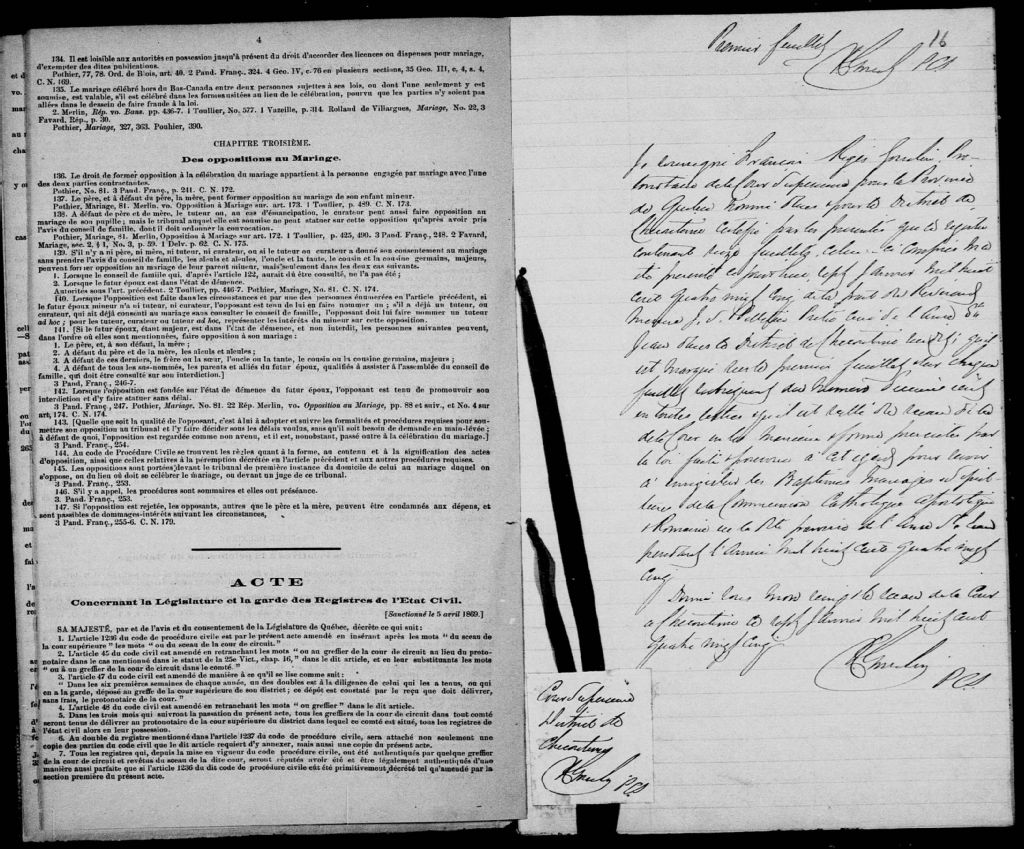 4
134. Il est loisible aux autorités en possession jusqu'à présent du droit d'accorder des licences ou dispenses pour mariage,
d'exempter des dites publications.
Pothier, 77, 78. Ord. de Blois, art. 40. 2 Pand. Franç. 324. 4 Geo. IV, c. 76 en plusieurs sections, 35 Geo. III, c, 4, s. 4,
C. N. 169.
135. Le mariage célébré hors du Bas-Canada entre deux personnes sujettes à ses lois, ou dont l'une seulement y est
soumise, est valable, s'il est célébré dans les formes usitées au lieu de la célébration, pourvu que les parties n'y soient pas
allées dans le dessein de faire fraude à la loi.
2. Merlin, Rép. vo. Bans. pp. 436-7. 1 Toullier, No. 577. 1 Vazeille, p. 314. Rolland de Villargues, Mariage, No. 22, 3
Favard, Rép., p. 30.
Pothier, Mariage, 327, 363. Pouhier, 390.
CHAPITRE TROISIÈME.
Des oppositions au Mariage.
136. Le droit de former opposition à la célébration du mariage appartient à la personne engagée par mariage avec l'une
des deux parties contractantes.
Pothier, No. 81. 3 Pand. Franç., p. 241. C. N. 172.
137. Le père, et à défaut du père, la mère, peut former opposition au mariage de son enfant mineur.
Pothier, Mariage, 81. Merlin, vo. Opposition à Mariage sur art. 173. 1 Toullier, p. 489. C. N. 173.
138. A défaut de père et de mère, le tuteur ou, au cas d'émancipation, le curateur peut aussi faire opposition au
mariage de son pupille; mais le tribunal auquel elle est soumise ne peut statuer sur cette opposition qu'après avoir pris
l'avis du conseil de famille, dont il doit ordonner la convocation.
Pothier, Mariage, 81. Merlin, Opposition à Mariage sur art. 172. 1 Toullier, p. 425, 490. 3 Pand. Franç., 248. 2 Favard,
Mariage, sec. 2, § 1, No. 3, p. 59. 1 Delv. p. 62. C. N. 175.
139. S'il n'y a ni père, ni mère, ni tuteur, ni curateur, ou si le tuteur ou curateur a donné son consentement au mariage
sans prendre l'avis du conseil de famille, les aïeuls et aïeules, l'oncle et la tante, le cousin et la cousine germains, majeurs,
peuvent former opposition au mariage de leur parent mineur, mais seulement dans les deux cas suivants.
1. Lorsque le conseil de famille qui, d'après l'article 122, aurait dû être consulté, ne l'a pas été;
2. Lorsque le futur époux est dans l'état de démence.
Autorités sous l'art. précédent. 2 Toullier, pp. 446-7. Pothier, Mariage, No. 81. C. N. 174.
140. Lorsque l'opposition est faite dans les circonstances et par une des personnes énumérées en l'article précédent, si
le futur époux mineur n'a ni tuteur, ni curateur, l'opposant est tenu de lui en faire nommer un; s'il a déjà un tuteur, ou
curateur, qui ait déjà consenti au mariage sans consulter le conseil de famille, l'opposant doit lui faire nommer un tuteur
ad hoc; pour les tuteur, curateur ou tuteur ad hoc, représenter les intérêts du mineur sur cette opposition.
141. [Si le futur époux, étant majeur, est dans l'état de démence, et non interdit, les personnes suivantes peuvent,
dans l'ordre où elles sont mentionnées, faire opposition à son mariage:
1. Le père, et, à son défaut, la mère;
2. A défaut du père et de la mère, les aïeuls et aïeules;
3. A défaut de ces derniers, le frère ou la sœur, l'oncle ou la tante, le cousin ou la cousine germains, majeurs;
4. A défaut de tous les sus-nommés, les parents et alliés du futur époux, qualifiés à assister à l'assemblée du conseil de
famille, qui doit être consulté sur son interdiction.]
3 Pand. Franç., 246-7.
142. Lorsque l'opposition est fondée sur l'état de démence du futur époux, l'opposant est tenu de promouvoir son
interdiction et d'y faire statuer sans délai.
3 Pand. Franç., 247. Pothier, Mariage. No. 81. 22 Rép. Merlin, vo. Opposition au Mariage, pp. 88 et suiv., et No. 4 sur
art, 174. C. N. 174.
143. [Quelle que soit la qualité de l'opposant, c'est à lui à adopter et suivre les formalités et procédures requises pour sou-
mettre son opposition au tribunal et l'y faire décider sous les délais voulus, sans qu'il soit besoin de demande en main-levée;
à défaut de quoi, l'opposition est regardée comme non avenu, et il est, nonobstant, passé outre à la célébration du mariage.]
3 Pand. Franç., 254.
144. Au code de Procédure Civile se trouvent les règles quant à la forme, au contenu et à la signification des actes
d'opposition, ainsi que celles relatives à la péremption décrétée en l'article précédent et aux autres procédures requises.
145. Les oppositions sont portées devant le tribunal de première instance du domicile de celui au mariage duquel on
s'oppose, ou du lieu où doit se célébrer le mariage, ou devant un juge de ce tribunal.
3 Pand. Franç., 253.
146. S'il y a appel, les procédures sont sommaires et elles ont préséance.
3. Pand. Franç., 253.
147. Si l'opposition est rejetée, les opposants, autres que le père et la mère, peuvent être condamnés aux dépens, et
sont passibles de dommages-intérêts suivant les circonstances,
3 Pand. Franç., 255-6. C. N. 179.
ACTE
Concernant la Législature et la garde des Registres de l'Etat Civil.
[Sanctionné le 5 avril 1869.]
SA MAJESTÉ, par et de l'avis et du consentement de la Législature de Québec, décrète ce qui suit:
1. L'article 1236 du code de procédure civile est par le présent acte amendé en insérant après les mots " du sceau de
la cour supérieure " les mots " ou du sceau de la cour de circuit."
2. L'article 45 du code civil est amendé en retranchant les mots " ou au greffier de la cour de circuit au lieu du proto-
notaire dans le cas mentionné dans le statut de la 25e Vict., chap. 16, " dans le dit article, et en leur substituants les mots
" ou à un greffier de la cour de circuit dans le comté "
3. l'article 47 du code civil est amendé de manière à ce qu'il se lise comme suit:
" Dans les six premières semaines de chaque année, un des doubles est à la diligence de celui qui les a tenus, ou qui
en a la garde, déposé au greffe de la cour supérieure de son district; ce dépôt est constaté par le reçu que doit délivrer,
sans frais, le protonotaire de la cour. "
4. L'article 48 du code civil est amendé en retranchant les mots " ou greffier " dans le dit article.
5. Dans les trois mois qui suivront la passation du présent acte, tous les greffiers de la cour de circuit dans tout comté
seront tenus de délivrer au protonotaire de la cour supérieure du district dans lequel ce comté est situé, tous les registres de
l'état civil alors en leur possession.
6. Au double du registre mentionné dans l'article 1237 du code de procédure civile, sera attaché non seulement une
copie des parties du code civil que le dit article requiert d'y annexer, mais aussi une copie du présent acte.
7. Tous les registres qui, depuis la mise en vigueur du code procédure civile, ont été authentiqués par quelque greffier
de la cour de circuit et revêtus du sceau de la dite cour, seront réputés avoir été et être légalement authentiqués d'une
manière aussi parfaite que si l'article 1236 du dit code de procédure civile eût été primitivement décrété tel qu'amendé par la
section première du présent acte.
Premier feuillet
16
PCS
Je soussigné François Régis Gosselin, Pro-
tonotaire de la Cour Supérieure pour la Province
de Québec nommé dans & pour le District de
Chicoutimi Certifie par les présentes que ce registre
contenant seize feuillets, celui-ci compris m'a
été présenté ce jour sept Janvier mil huit
cent quatre vingt cinq de la part du Révérend
Messire J. S. Pelletier Prêtre Curé de l'Anse St
Jean dans le District de Chicoutimi
est marqué sur le premier feuillet & sur chaque
feuillet subséquent du numéro d'icelui écrit
en toutes lettres & qu'il est scellé du sceau de la
de la Cour en la manière & forme prescrites par
la loi faite & pourvue à cet égard pour servir
à enregistrer les Baptêmes Mariages et Sépul-
tures de la Communion Catholique apostolique
& Romaine en la dite paroisse de l'Anse St Jean
pendant l'Année mil huit cent quatre vingt
cinq
Donné sous mon seing & le sceau de la Cour
à Chicoutimi ce sept Janvier mil huit cent
quatre vingt cinq
PCS
Cour Supérieure
District de
Chicoutimi
PCS